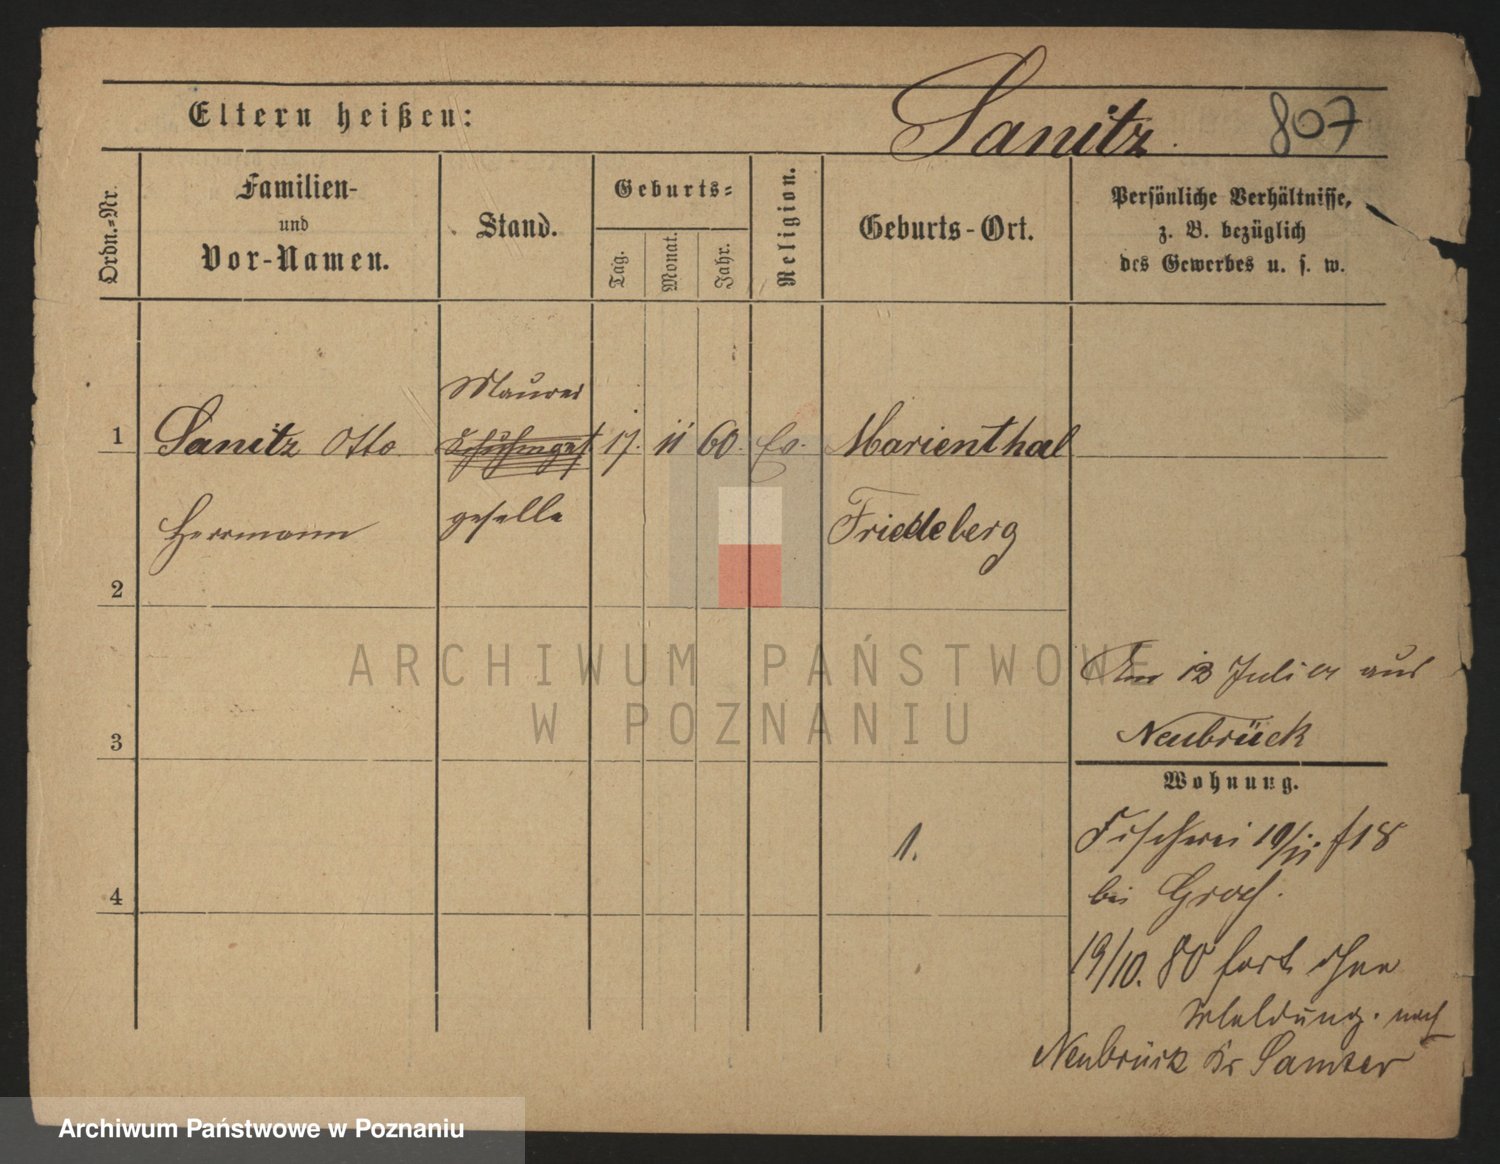 Eltern heißen: Sanitz. 807
Ordn.-Nr.
Familien-
und
Vor-Namen.
Stand.
Geburts-
Tag.
Monat.
Jahr.
Religion.
Geburts-Ort.
Persönliche Verhältnisse,
z. B. bezüglich
des Gewerbes u. s. w.
Maurer
1 Sanitz Otto 17. 11 60. Ev. Marienthal
Herrmann geselle Friedeberg
2
ARCHIWUM PAŃSTWOWE
W POZNANIU
Juli aus
Neubrück
3
Wohnung.
1.
Fischerei 18
bei
4
19/10. 80 fort ohne
Meldung. nach
Neubrück Kr Samter
Archiwum Państwowe w Poznaniu